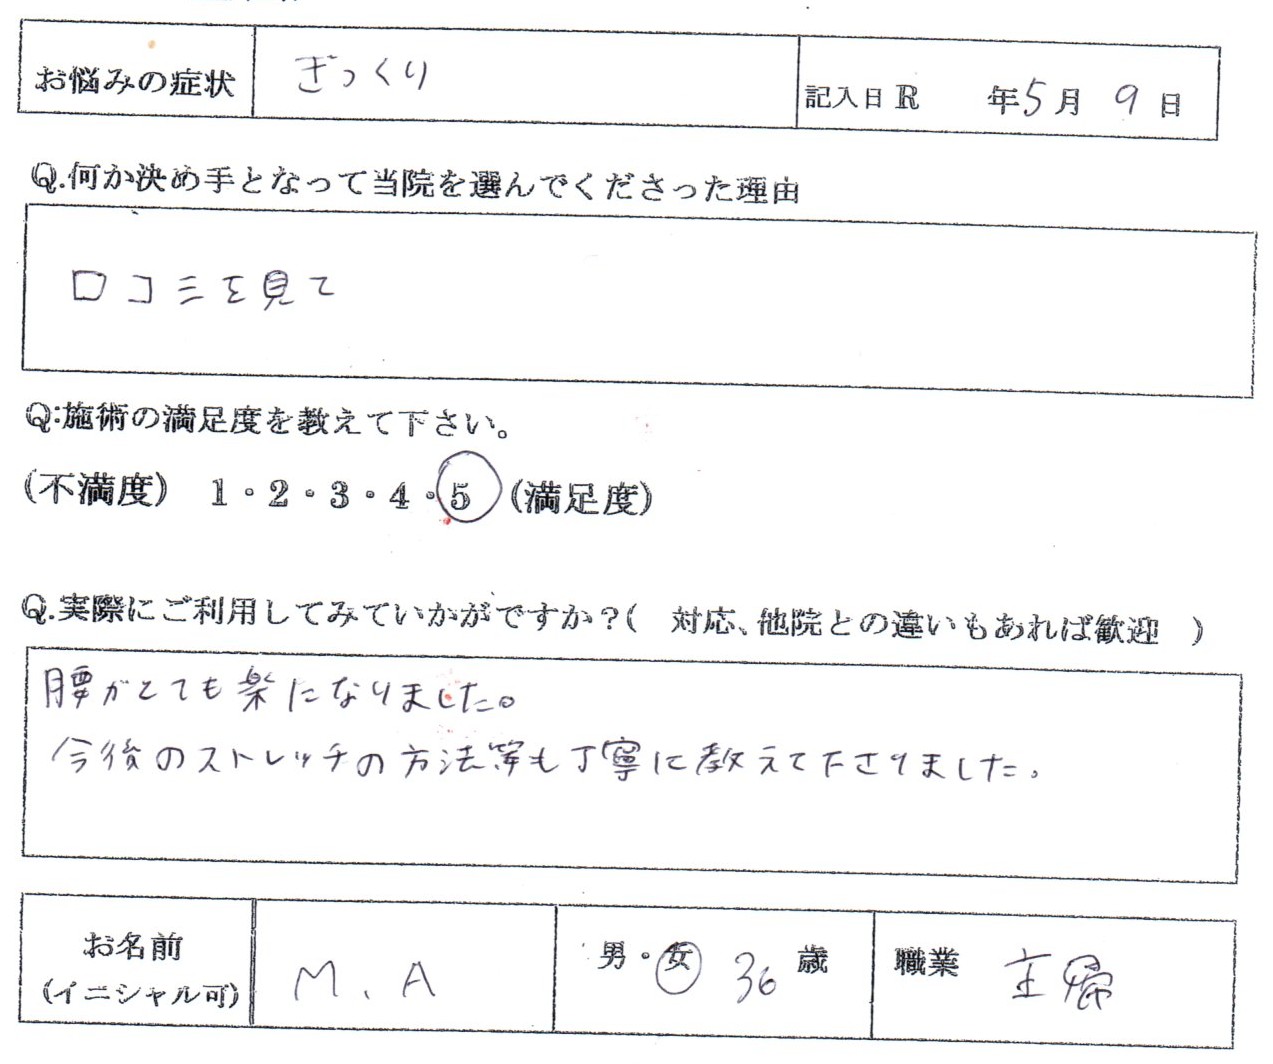 お悩みの症状 ぎっくり 記入日 R 年5月 9日
Q.何か決め手となって当院を選んでくださった理由
口コミを見て
Q:施術の満足度を教えて下さい。
(不満度) 1・2・3・4・5 (満足度)
Q.実際にご利用してみていかがですか?( 対応、他院との違いもあれば歓迎 )
腰がとても楽になりました。
今後のストレッチの方法等も丁寧に教えて下さりました。
お名前
(イニシャル可) M、A 男・女 36歳 職業 主婦